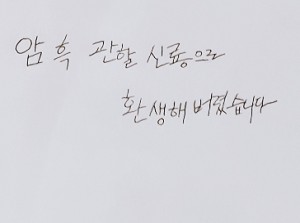 암흑 관할 신룡으로
환생해 버렸습니다